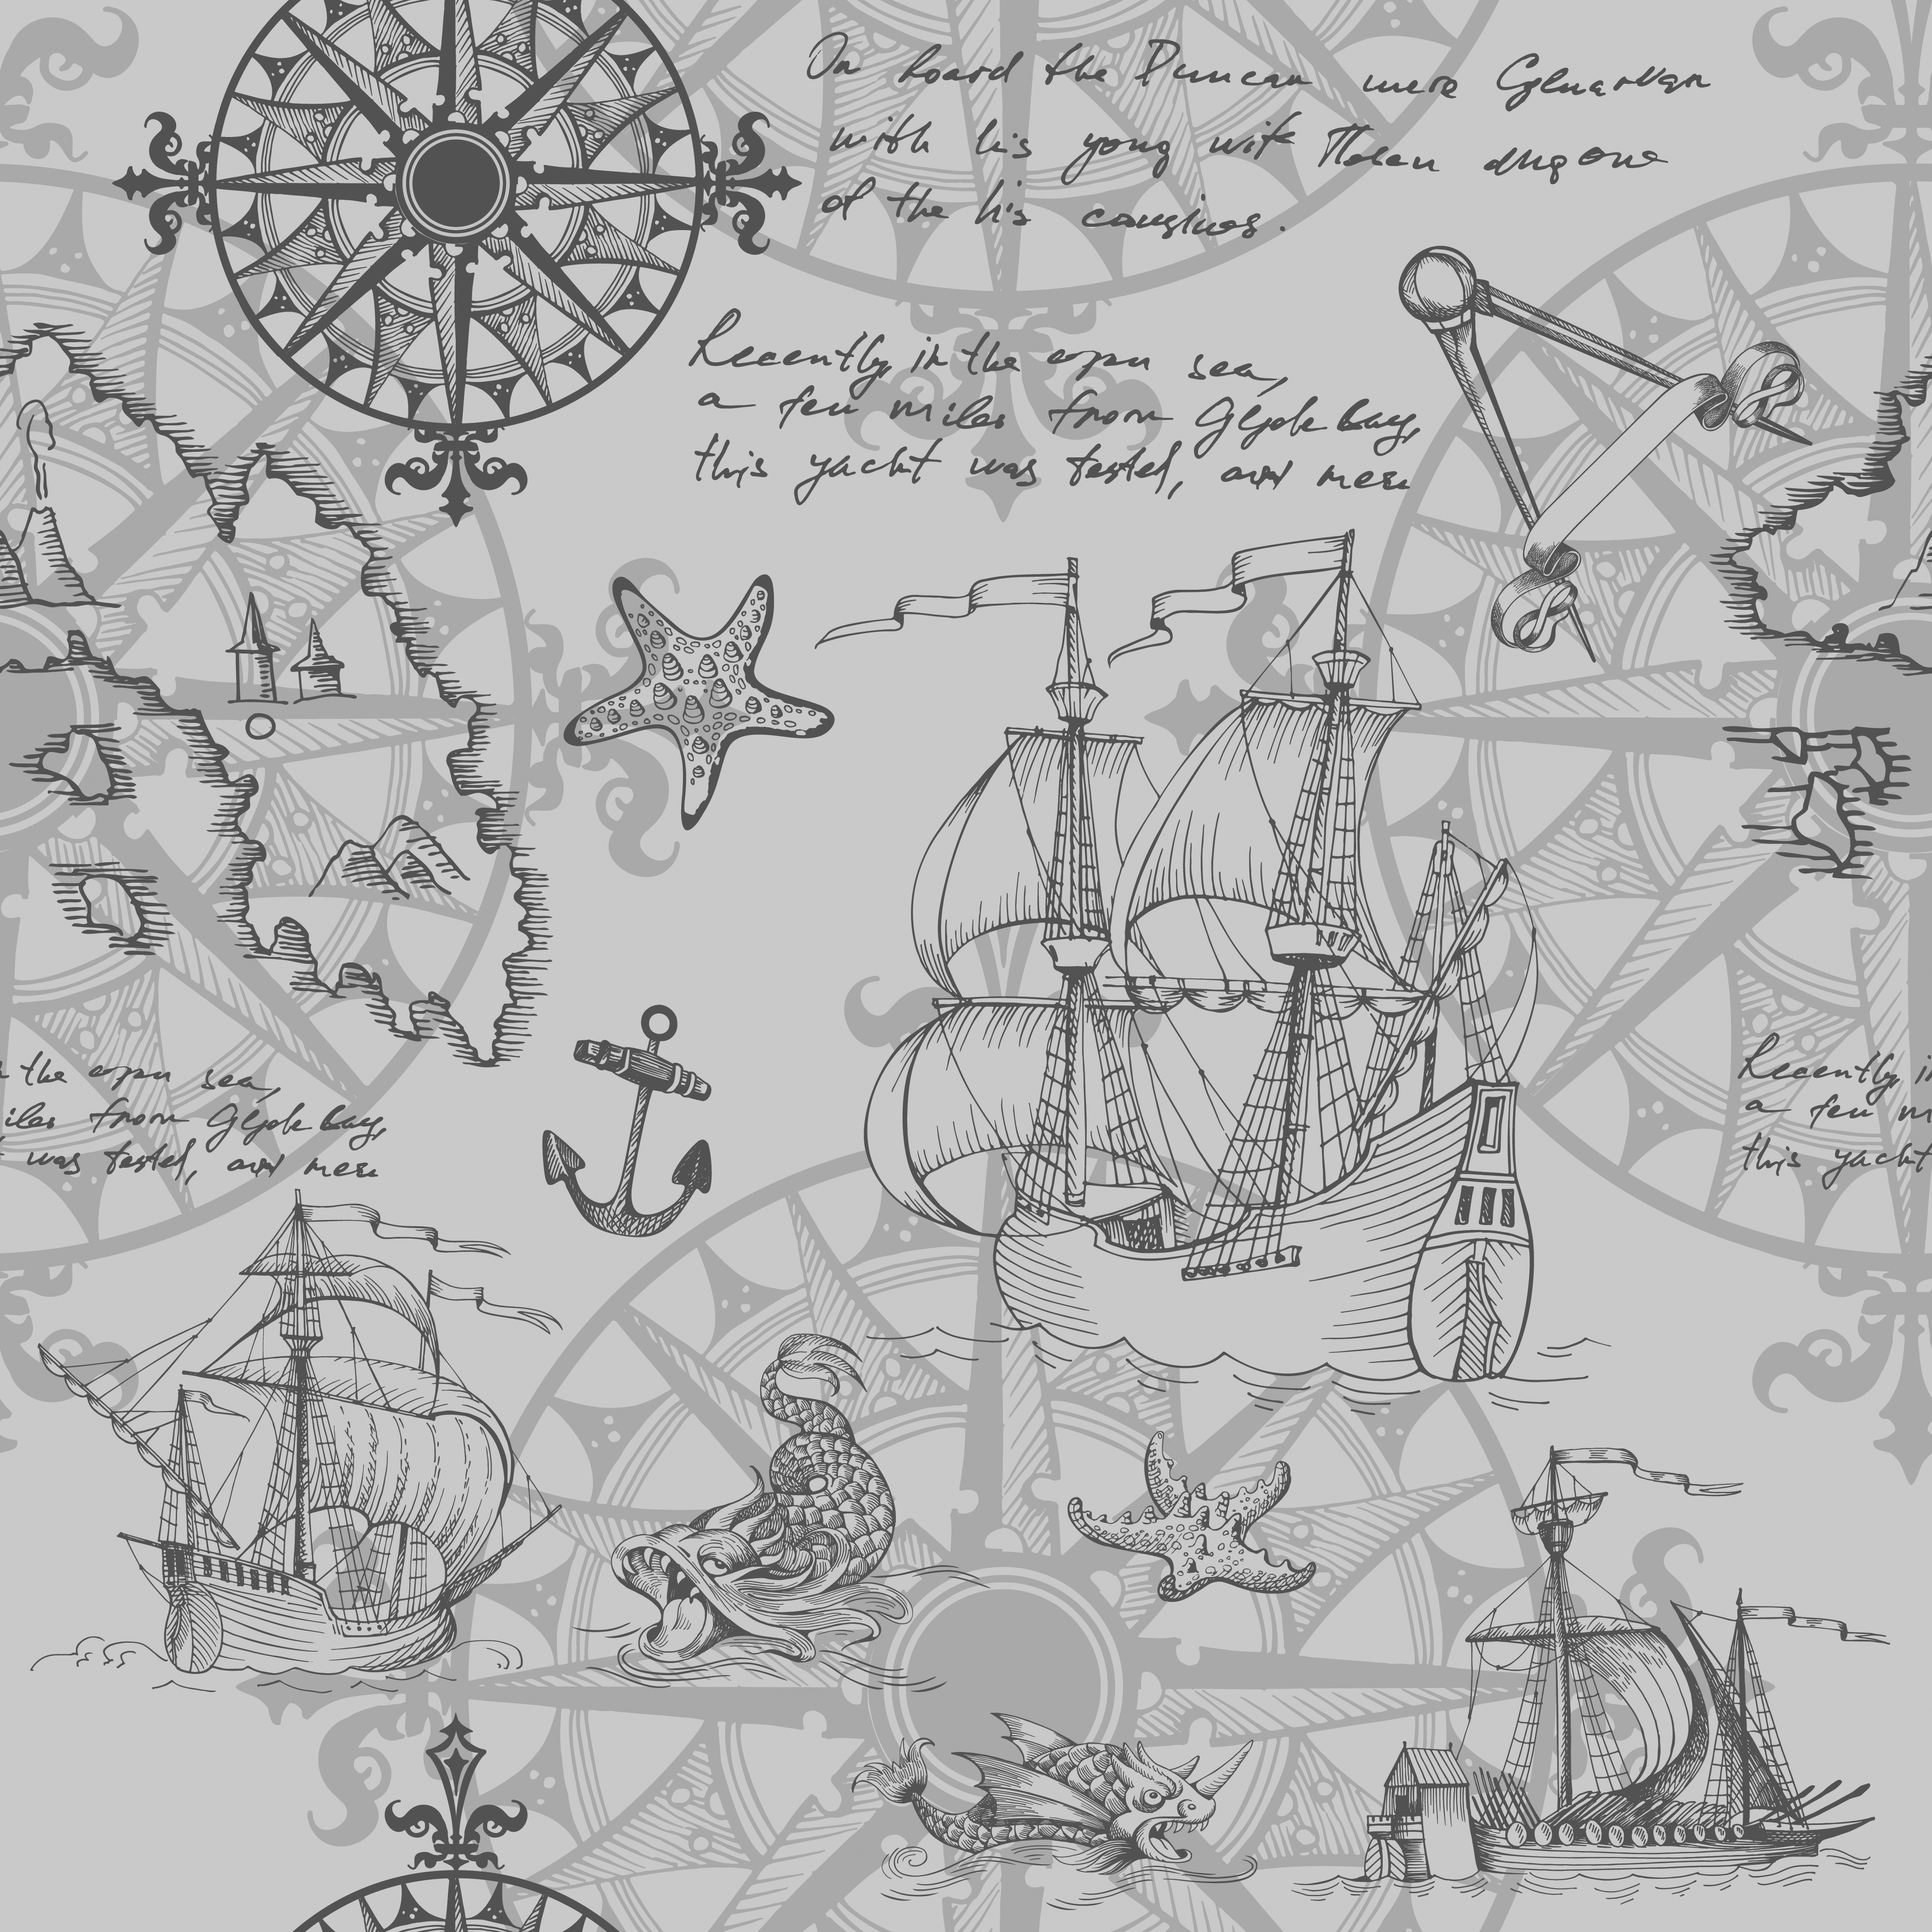 On board the Duncan were Glenarvan
with his yong wife Helen
of the his cousines.
Recently, in the open sea,
a few miles from Glyde bay,
this yacht was tested, and
n the open sea,
iles from Glyde bay,
was tested, and
Recently, i
a few m
this yacht